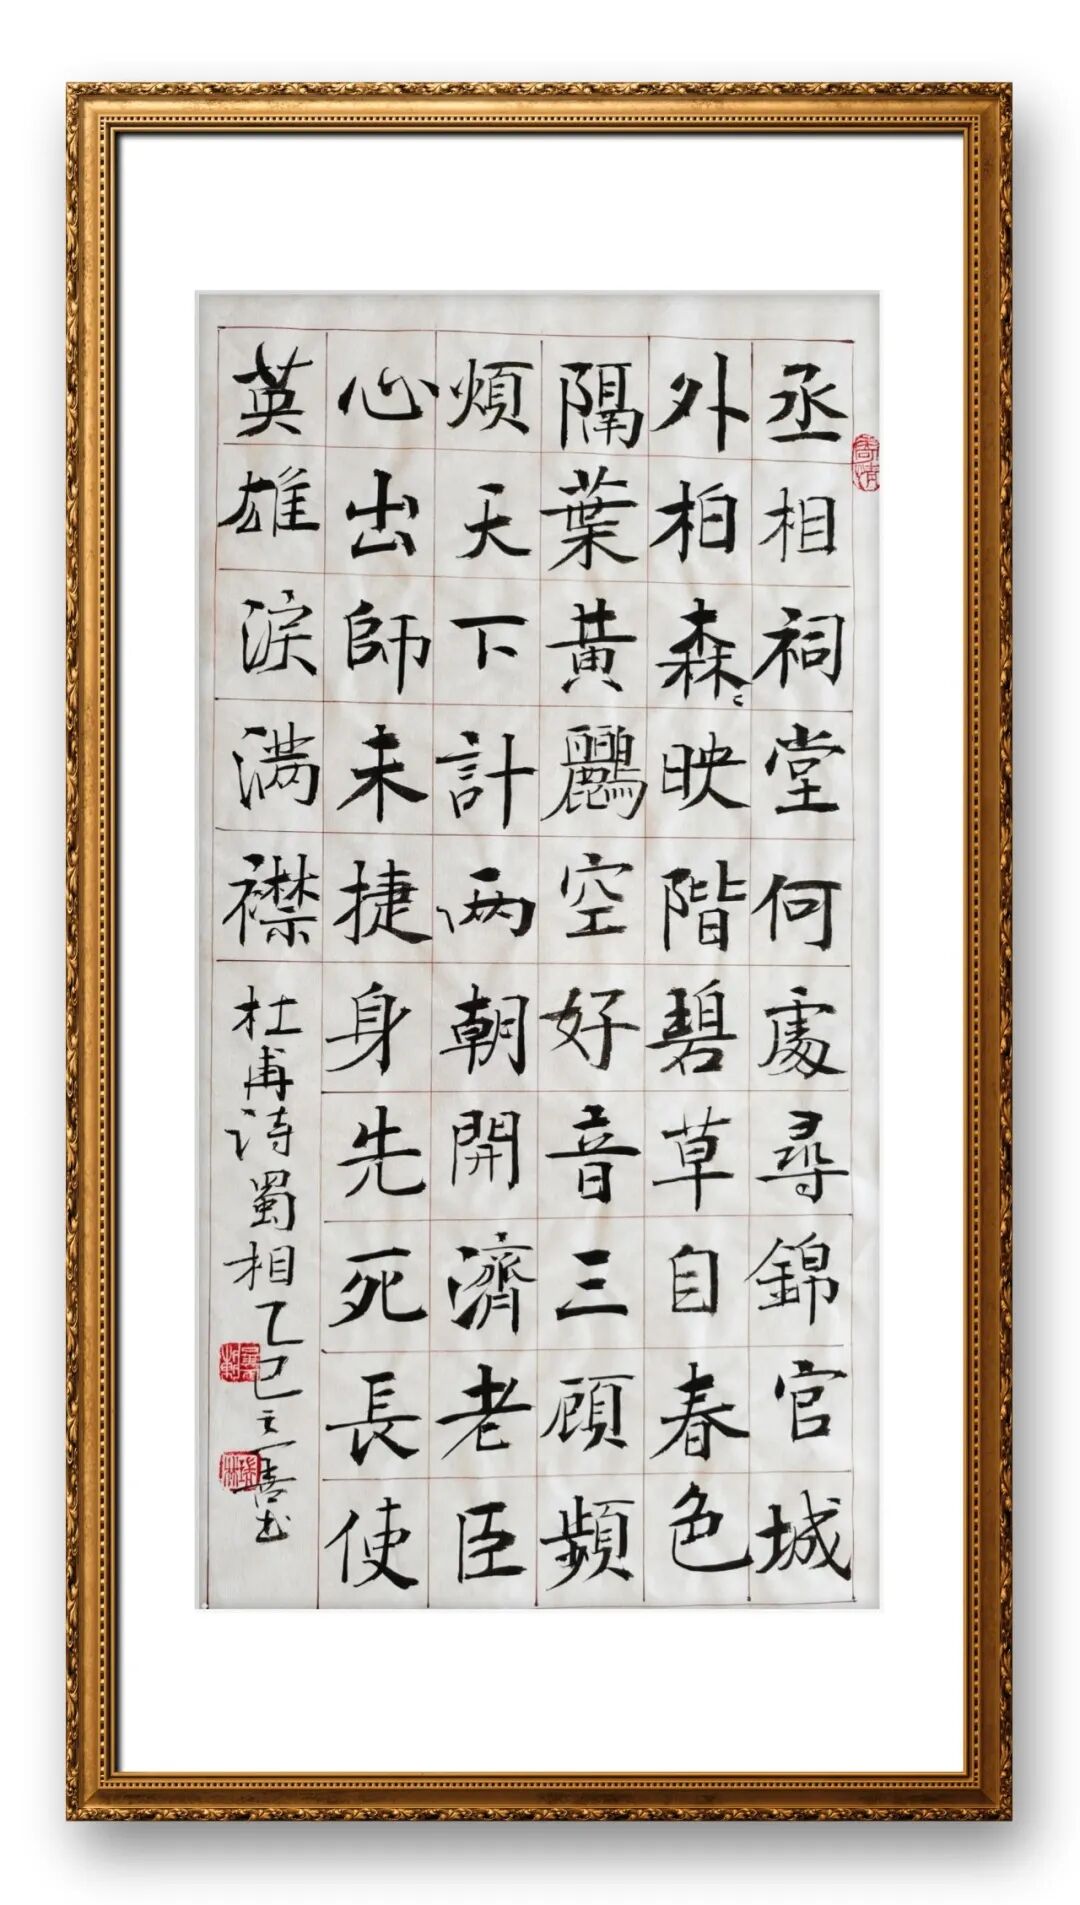 丞相祠堂何處尋錦官城
外柏森〻映階碧草自春色
隔葉黃鸝空好音三顧頻
煩天下計兩朝開濟老臣
心出師未捷身先死長使
英雄淚满襟
杜甫诗蜀相乙巳立喜书